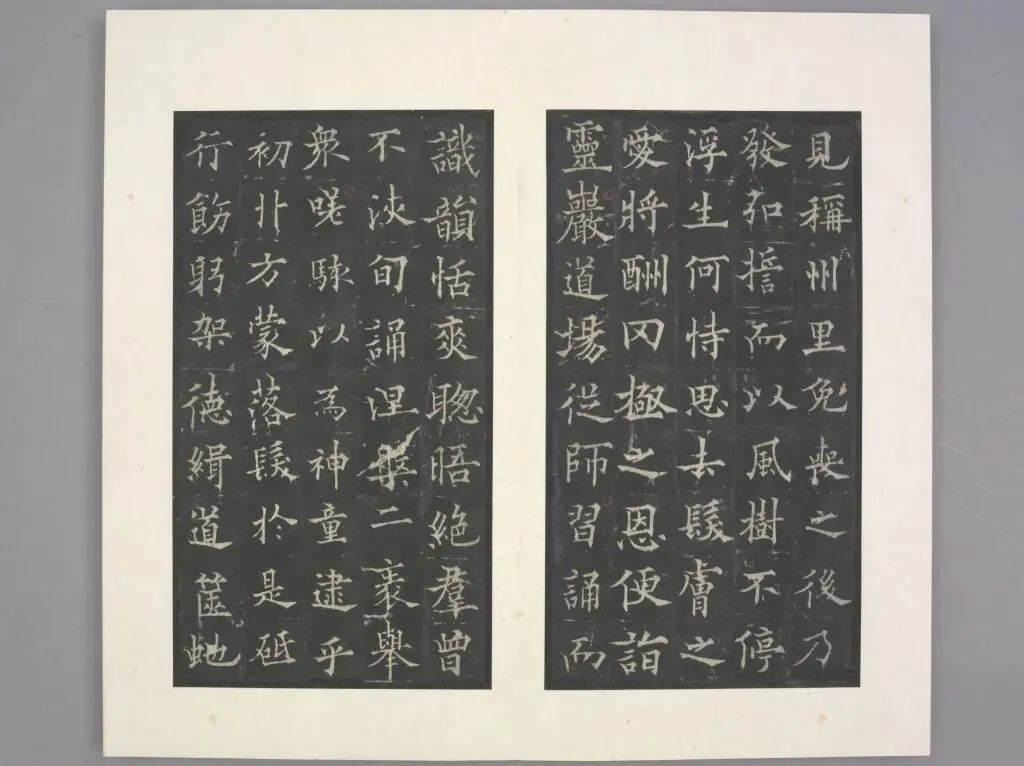 見稱州里免喪之後乃
發弘擔而以風樹不停
浮生何恃思去髮膚之
愛將酬罔極之恩便詣
靈巖道場從師習誦而
識韻恬爽聦晤絕羣曾
不浹旬誦涅槃二袠舉
衆嗟駭以為神童逮乎
初丱方蒙落髮於是砥
行飭躬架德緝道篋虵